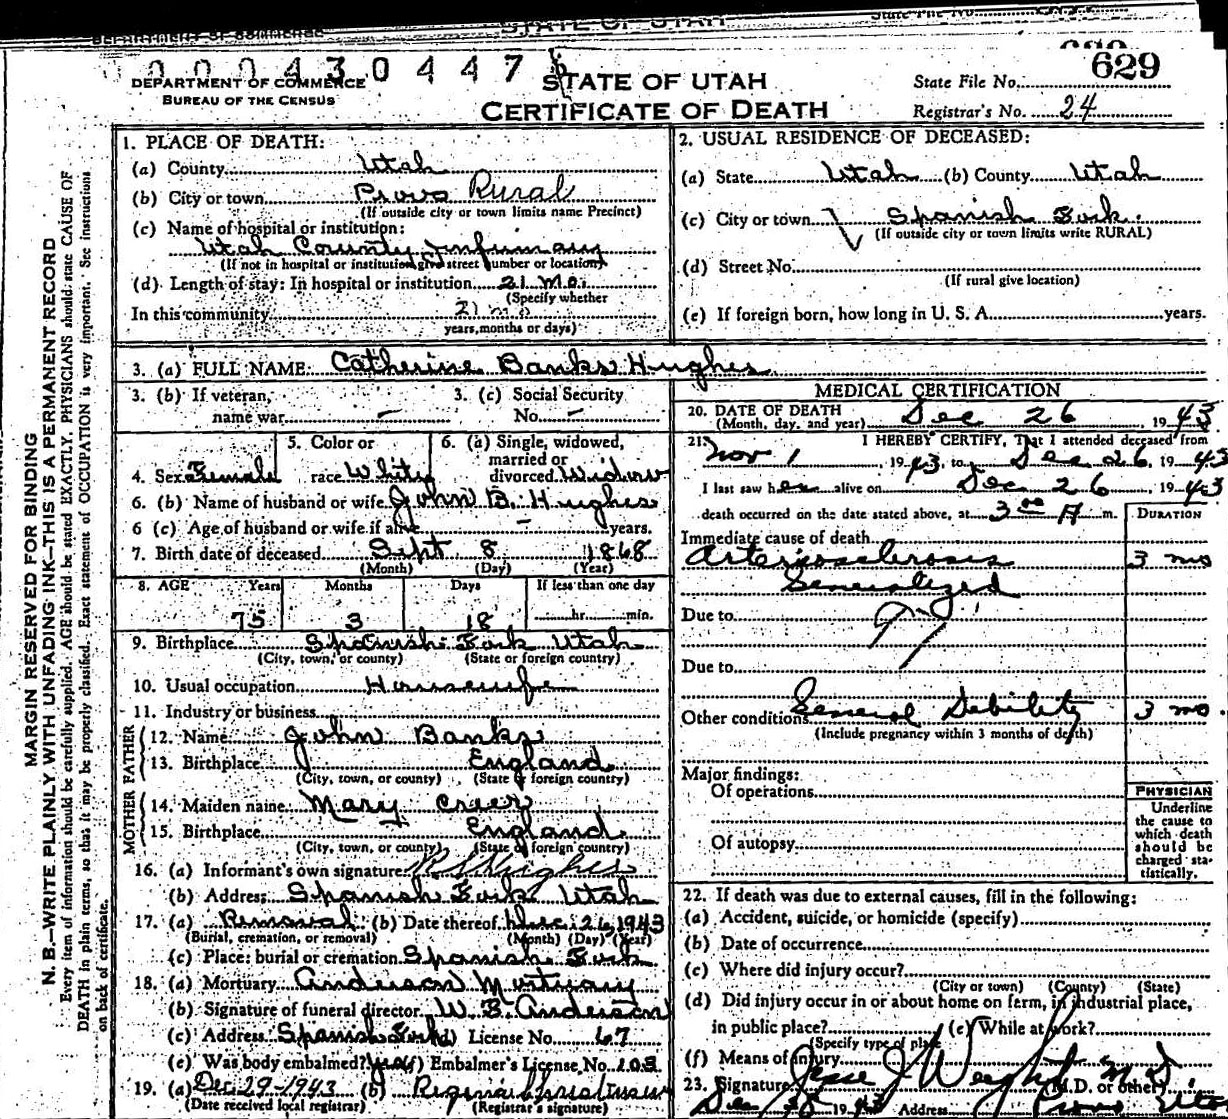 0 0 0 4 3 0 4 4 7
629
DEPARTMENT OF COMMERCE
BUREAU OF THE CENSUS
STATE OF UTAH
CERTIFICATE OF DEATH
State File No.
Registrar's No. 24
MARGIN RESERVED FOR BINDING
N. B.—WRITE PLAINLY WITH UNFADING INK—THIS IS A PERMANENT RECORD
Every item of information should be carefully supplied. AGE should be stated EXACTLY. PHYSICIANS should state CAUSE OF
DEATH in plain terms, so that it may be properly classified. Exact statement of OCCUPATION is very important. See instructions
on back of certificate.
1. PLACE OF DEATH:
(a) County Utah
(b) City or town Provo Rural
(If outside city or town limits name Precinct)
(c) Name of hospital or institution:
Utah County Infirmary
(If not in hospital or institution give street number or location)
(d) Length of stay: In hospital or institution 21 Mo.
(Specify whether
In this community 21 mo
years, months or days)
2. USUAL RESIDENCE OF DECEASED:
(a) State Utah (b) County Utah
(c) City or town Spanish Fork.
(If outside city or town limits write RURAL)
(d) Street No.
(If rural give location)
(e) If foreign born, how long in U. S. A. years.
3. (a) FULL NAME Catherine Banks Hughes
3. (b) If veteran, name war –
3. (c) Social Security No. –
4. Sex Female
5. Color or race White
6. (a) Single, widowed, married or divorced Widow
6. (b) Name of husband or wife John B. Hughes
6 (c) Age of husband or wife if alive – years.
7. Birth date of deceased Sept 8 1868
(Month) (Day) (Year)
8. AGE Years Months Days If less than one day
75 3 18 hr. min.
9. Birthplace Spanish Fork Utah
(City, town, or county) (State or foreign country)
10. Usual occupation Housewife
11. Industry or business
FATHER
12. Name John Banks
13. Birthplace England
(City, town, or county) (State or foreign country)
MOTHER
14. Maiden name Mary Creer
15. Birthplace England
(City, town, or county) (State or foreign country)
16. (a) Informant's own signature Hughes
(b) Address Spanish Fork Utah
17. (a) Removal (b) Date thereof Dec. 26, 1943
(Burial, cremation, or removal) (Month) (Day) (Year)
(c) Place: burial or cremation Spanish Fork
18. (a) Mortuary Anderson Mortuary
(b) Signature of funeral director W. B. Anderson
(c) Address Spanish Fork (d) License No. 67
(e) Was body embalmed? yes (f) Embalmer's License No. 103
19. (a) Dec. 29-1943 (b)
(Date received local registrar) (Registrar's signature)
MEDICAL CERTIFICATION
20. DATE OF DEATH
(Month, day, and year) Dec 26, 1943
21. I HEREBY CERTIFY, That I attended deceased from
Nov 1, 1943, to Dec 26, 1943
I last saw her alive on Dec 26, 1943
death occurred on the date stated above, at 3 00 A m.
DURATION
Immediate cause of death
Arteriosclerosis 3 mo
Generalized
Due to
97
Due to
Other conditions General Debility 3 mo.
(Include pregnancy within 3 months of death)
Major findings:
Of operations
Of autopsy
PHYSICIAN
Underline
the cause to
which death
should be
charged sta-
tistically.
22. If death was due to external causes, fill in the following:
(a) Accident, suicide, or homicide (specify)
(b) Date of occurrence
(c) Where did injury occur?
(City or town) (County) (State)
(d) Did injury occur in or about home on farm, in industrial place,
in public place? (e) While at work?
(Specify type of place)
(f) Means of injury
23. Signature Jesse J Weight M D.
(M.D. or other)
Dec 1943 Address Provo Utah